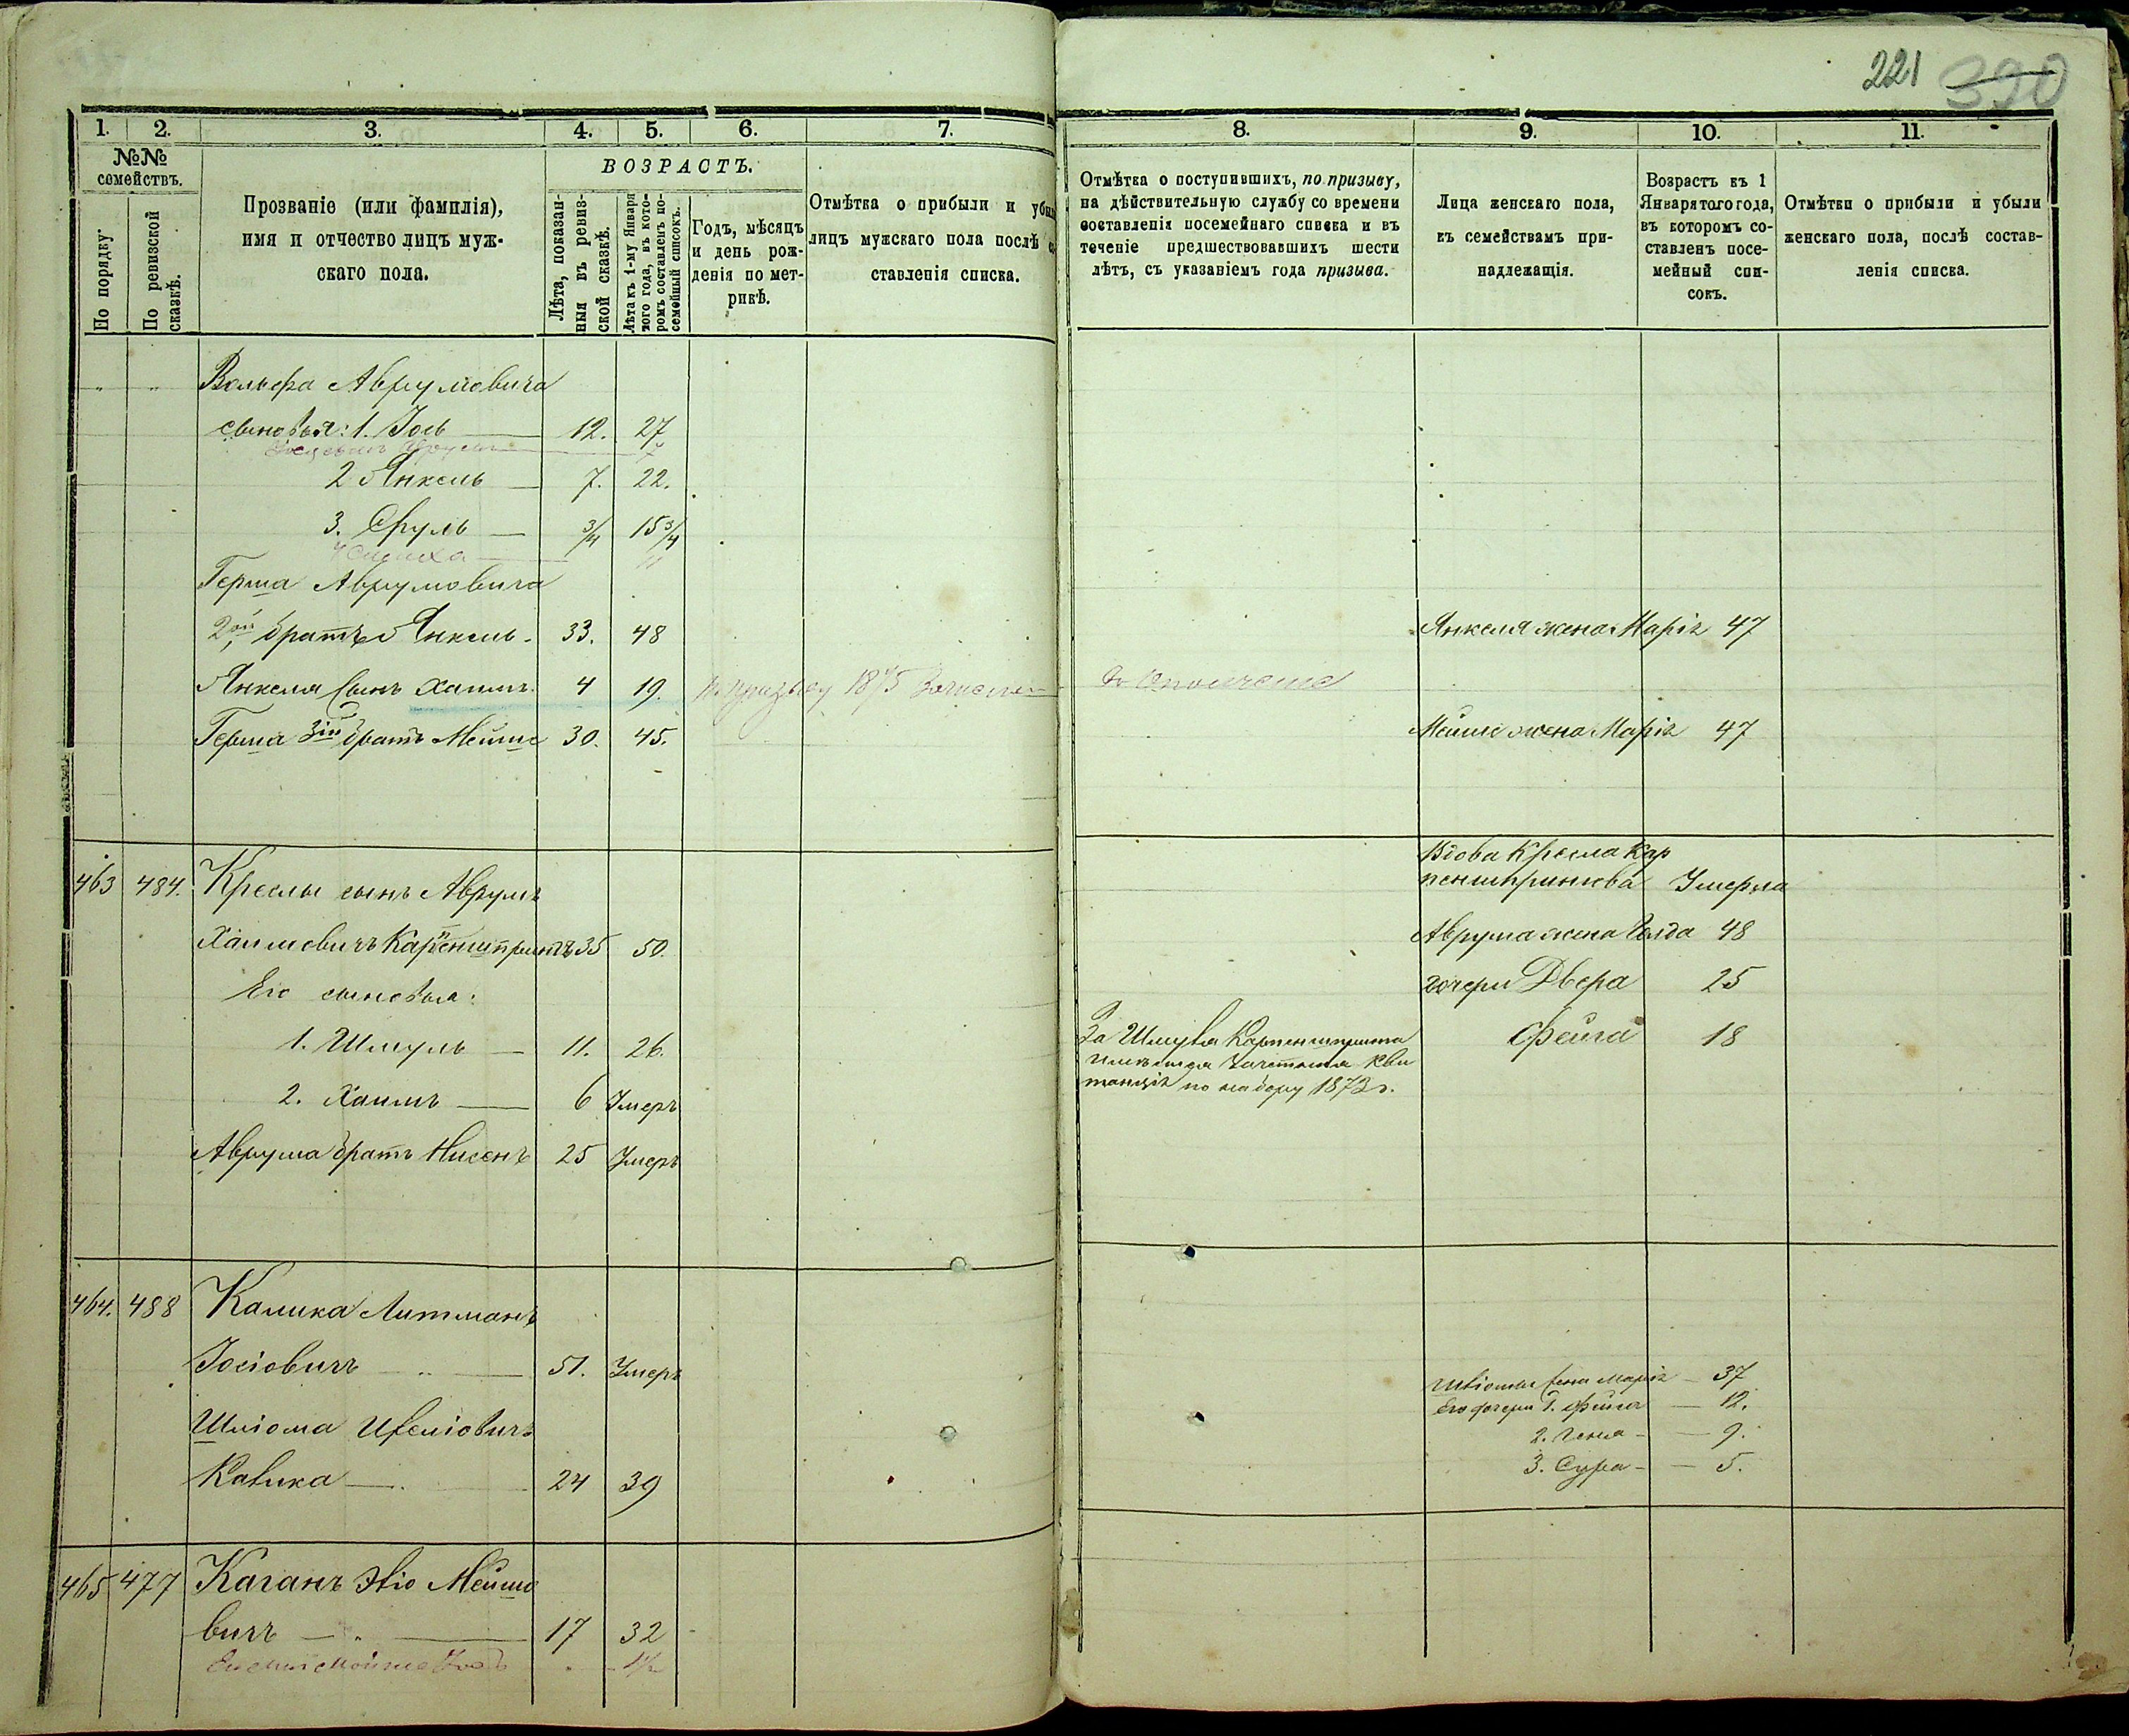 221 390
1. 2. 3. 4. 5. 6. 7.
№№ семействъ.
По порядку.
По ревизской сказкѣ.
Прозваніе (или фамилія),
имя и отчество лицъ муж-
скаго пола.
ВОЗРАСТЪ.
Лѣта, показан-
ныя въ ревиз-
ской сказкѣ.
Лѣта къ 1-му Января
того года, въ кото-
ромъ составленъ по-
семейный списокъ.
Годъ, мѣсяцъ
и день рож-
денія по мет-
рикѣ.
Отмѣтка о прибыли и убыли
лицъ мужскаго пола послѣ
ставленія списка.
" " Вольфа Аврумовича
сыновья: 1. Іось 12. 27
2 Янкель 7. 22.
3. Сруль 3/4 15 3/4
Герша Аврумовича
2ой братъ Янкель 33. 48
Янкеля сынъ Хаимъ 4 19. по призыву 1875 зачислен
Герша 3ій братъ Мейше 30. 45.
463 484. Креслы сынъ Аврумъ
Хаимовичъ Карпенштринтъ 35 50.
Его сыновья:
1. Шмуль 11. 26.
2. Хаимъ 6 Умеръ
Аврума братъ Нисенъ 25 Умеръ
464. 488 Калика Литманъ
Іосіовичъ 51. Умеръ
Шліома
Калика 24 39
465 477 Каганъ Мейшо
вичъ 17 32
8. 9. 10. 11.
Отмѣтка о поступившихъ, по призыву,
на дѣйствительную службу со времени
составленія посемейнаго списка и въ
теченіе предшествовавшихъ шести
лѣтъ, съ указаніемъ года призыва.
Лица женскаго пола,
къ семействамъ при-
надлежащія.
Возрастъ къ 1
Января того года,
въ которомъ со-
ставленъ посе-
мейный спи-
сокъ.
Отмѣтки о прибыли и убыли
женскаго пола, послѣ состав-
ленія списка.
Янкеля жена Марія 47
въ ополченіе
Мейше жена Марія 47
Вдова Кресла Кар
пенштринтова Умерла
Аврума жена Голда 48
дочери Двера 25
Фейга 18
За Шмуля Карпенштринта
имѣется зачетная кви
танція по набору 1873 г.
Шліомы жена Марія 37
Его дочери 1. Фейга 12.
2. Генia 9.
3. Сура 5.